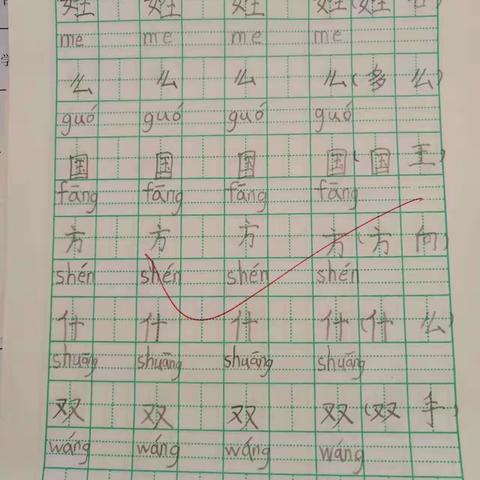 me me me me
么 么 么 么(多 么)
guó guó guó guó
国 国 国 国(国 王)
fāng fāng fāng fāng
方 方 方 方(方 向)
shén shén shén shén
什 什 什 什(什 么)
shuāng shuāng shuāng shuāng
双 双 双 双(双 手)
wáng wáng wáng wáng